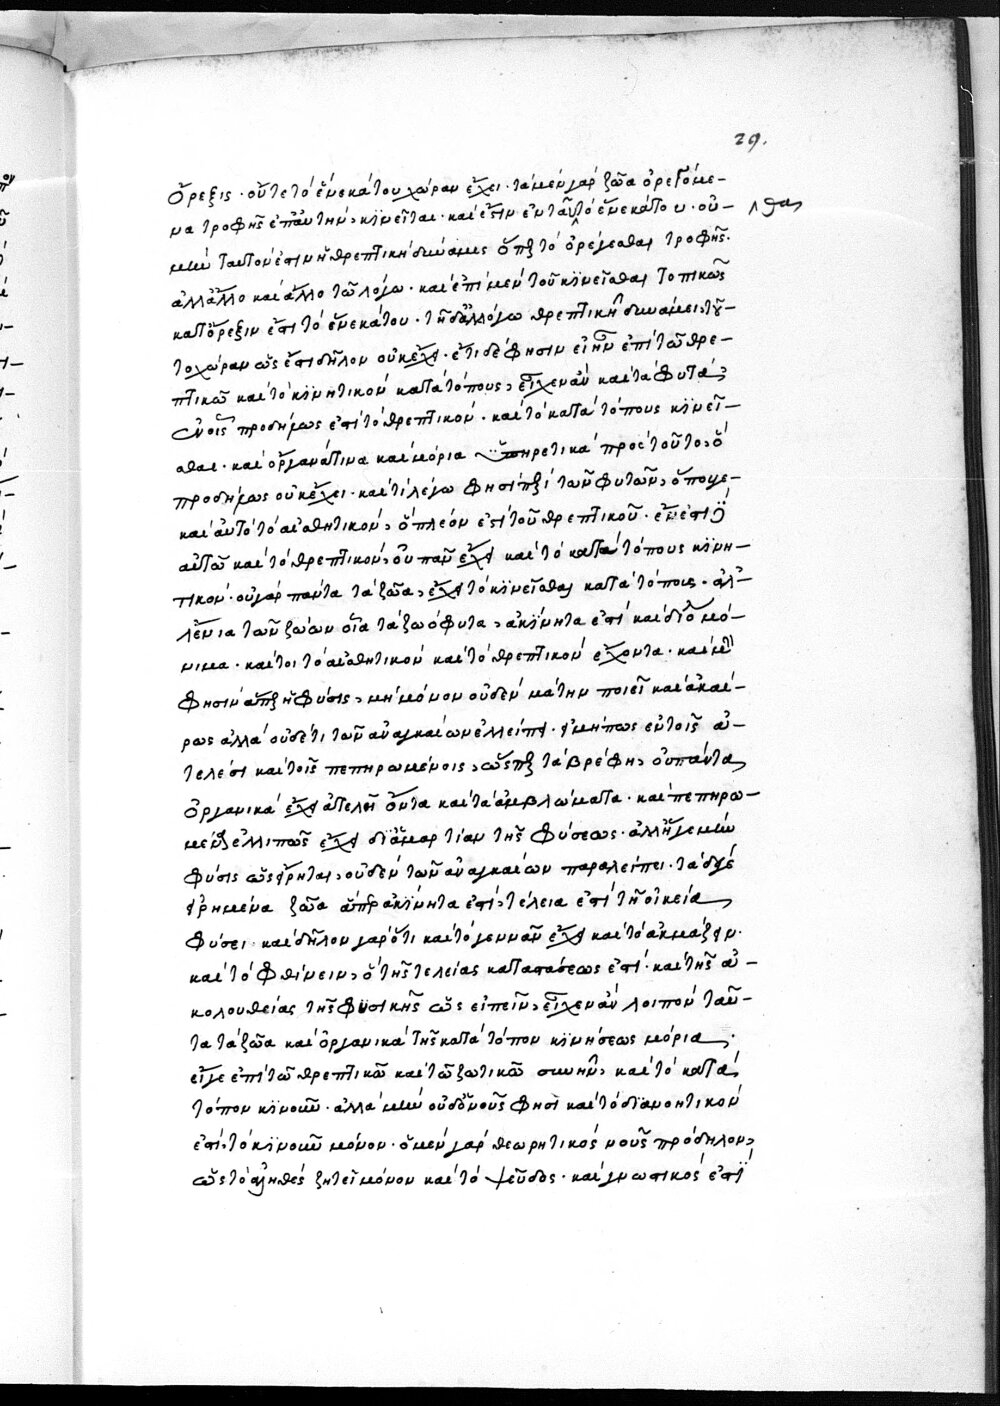 29.
ὄρεξις · οὔτε τὸ ἕνεκά του χώραν ἔχει · τὰ μὲν γὰρ ζῶα ὀρεγόμε-
να τροφῆς ἐπ' αὐτὴν κινεῖται · καὶ ἔστιν ἐνταῦ τὸ ἕνεκά του · οὐ- θα
μὴν ταυτόν ἐστιν ἡ θρεπτικὴ δύναμις ὅπερ τὸ ὀρέγεσθαι τροφῆς ·
ἀλλ' ἄλλο καὶ ἄλλο τῶ λόγω · καὶ ἐπὶ μὲν τοῦ κινεῖσθαι τοπικῶς
κατ' ὄρεξιν ἐστὶ τὸ ἕνεκά του · τῆ δ' ἀλόγω θρεπτικῆ δυνάμει, τοῦ-
το χώραν ὡς ἔστι δῆλον οὐκ ἔχει · ἔτι δέ φησιν εἰ ἦν ἐπὶ τῶ θρε-
πτικῶ καὶ τὸ κινητικὸν κατὰ τόπους, εἶχεν ἂν καὶ τὰ φυτά,
ἐν οἷς προδήλως ἐστὶ τὸ θρεπτικόν · καὶ τὸ κατὰ τόπους κινεῖ-
σθαι · καὶ ὄργανά τινα καὶ μόρια ὑπηρετικὰ πρὸς τοῦτο, ὃ
προδήλως οὐκ ἔχει · καὶ τί λέγω φησὶ περὶ τῶν φυτῶν, ὅπου γε
καὶ αὐτὸ τὸ αἰσθητικόν, ὃ πλέον ἐστὶ τοῦ θρεπτικοῦ · ἔνεστι
αὐτῶ καὶ τὸ θρεπτικόν, οὐ πᾶν ἔχει καὶ τὸ κατὰ τόπους κινη-
τικόν · οὐ γὰρ πάντα τὰ ζῶα, ἔχει τὸ κινεῖσθαι κατὰ τόπους · ἀλ-
λ' ἔνια τῶν ζώων οἷα τὰ ζωόφυτα, ἀκίνητα ἐστὶ καὶ διὸ μό-
νιμα · καίτοι τὸ αἰσθητικὸν καὶ τὸ θρεπτικὸν ἔχοντα · καὶ μὴν
φησὶν ἅπερ ἡ φύσις, μὴ μόνον οὐδὲν μάτην ποιεῖ καὶ ἀκαί-
ρως ἀλλὰ οὐδέ τι τῶν ἀναγκαίων ἐλλείπει · εἰ μή πως ἐν τοῖς ἀ-
τελέσι καὶ τοῖς πεπηρωμένοις, ὥσπερ τὰ βρέφη, οὐ πάντα
ὀργανικὰ ἔχει ἀτελῆ ὄντα καὶ τὰ ἀμβλώματα · καὶ πεπηρω-
μένα ἐλλιπῶς ἔχει δι' ἁμαρτίαν τῆς φύσεως · ἀλλ' ἥ γε μὴν
φύσις ὡς εἴρηται, οὐδὲν τῶν ἀναγκαίων παραλείπει · τὰ δέ γε
εἰρημένα ζῶα ἅπερ ἀκίνητα ἐστὶ, τέλεια ἐστὶ τῆ οἰκεία
φύσει · καὶ δῆλον γὰρ ὅτι καὶ τὸ γεννᾶν ἔχει καὶ τὸ ἀκμάζειν ·
καὶ τὸ φθίνειν, ὃ τῆς τελείας καταστάσεως ἐστί · καὶ τῆς ἀ-
κολουθείας τῆς φυσικῆς ὡς εἰπεῖν, εἶχεν ἂν λοιπὸν ταῦ-
τα τὰ ζῶα καὶ ὀργανικὰ τῆς κατὰ τόπον κινήσεως μόρια ·
εἴγε ἐπὶ τῶ θρεπτικῶ καὶ τῶ ζωτικῶ συνῆν, καὶ τὸ κατὰ
τόπον κινοῦν · ἀλλὰ μὴν οὐδ' ὁ νοῦς φησὶ καὶ τὸ διανοητικόν
ἐστι, τὸ κινοῦν μόνον · ὁ μὲν γὰρ θεωρητικὸς νοῦς πρόδηλον,
ὡς τὸ ἀληθὲς ζητεῖ μόνον καὶ τὸ ψεῦδος · καὶ γνωστικός ἐστι